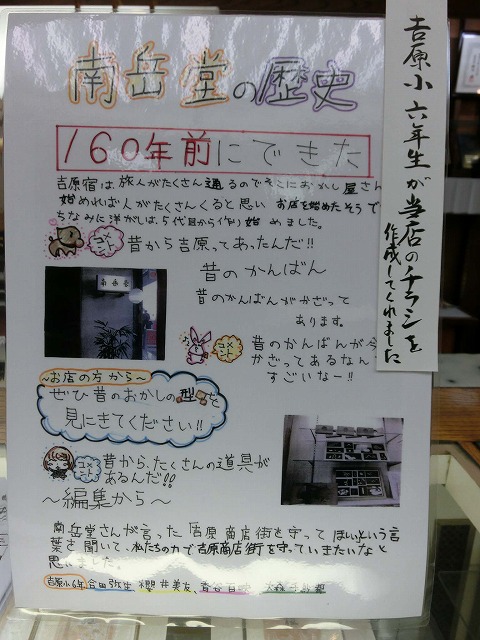 南岳堂の歴史
160年前にできた
吉原宿は旅人がたくさん通るのでそこにおかし屋さん
始めれば人がたくさんくると思いお店を始めたそうで
ちなみに洋がしは、5代目から作り始めました。
コメント
昔から吉原ってあったんだ!!
昔のかんばん
昔のかんばんがかざって
あります。
コメント
昔のかんばんが今
かざってあるなん
すごいなー!!
~お店の方から~
ぜひ昔のおかしの型を
見にきてください!!
コメント
昔から、たくさんの道具が
あるんだ!!
~編集から~
南岳堂さんが言った「吉原商店街を守ってほしい」という言
葉を聞いて、私たちの力で吉原商店街を守っていきたいなと
思いました。
吉原小6年
吉原小六年生が当店のチラシを
作成してくれました
南岳堂